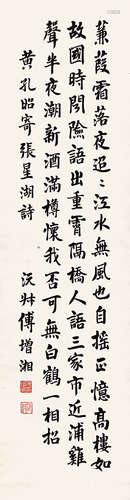 蒹葭霜落夜迢〻江水無風也自搖正憶高樓如
故國時聞險語出重霄隔橋人語三家市近浦雞
聲半夜潮新酒滿樽懷我否可無白鶴一相招
黃孔昭寄張星湖詩
沅尗傅增湘